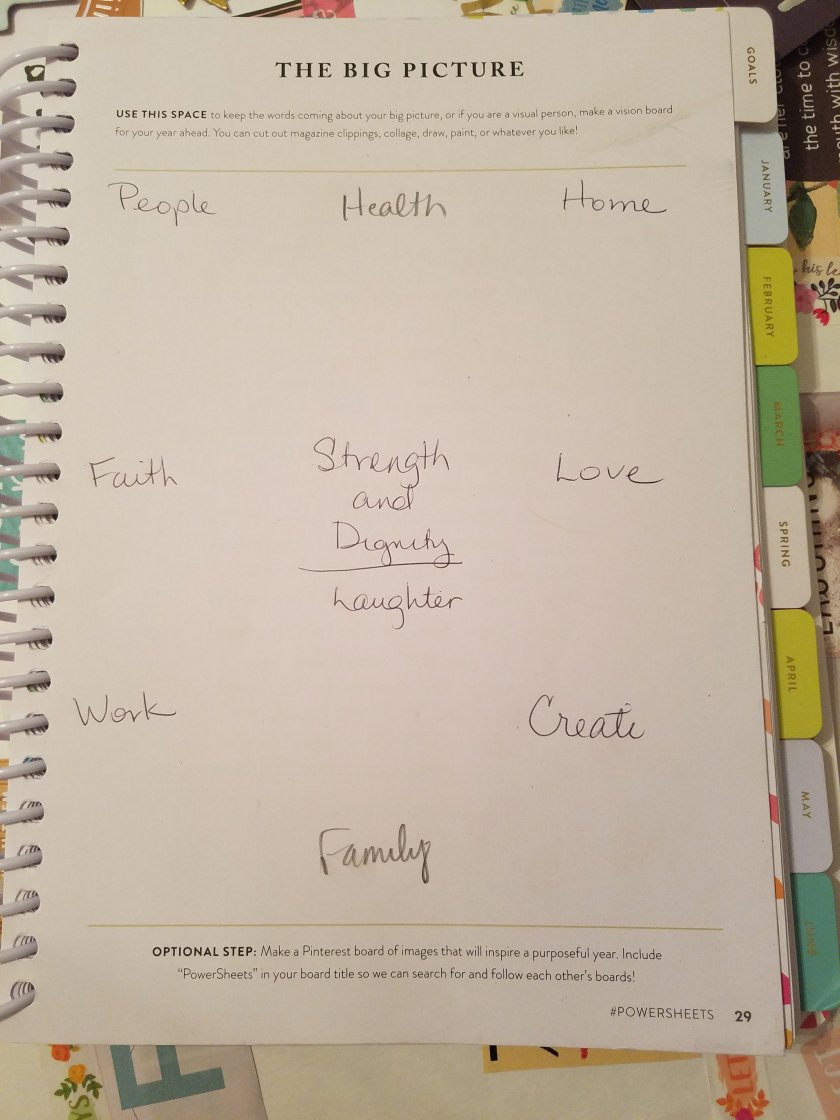 THE BIG PICTURE
USE THIS SPACE to keep the words coming about your big picture, or if you are a visual person, make a vision board
for your year ahead. You can cut out magazine clippings, collage, draw, paint, or whatever you like!
People Health Home
Faith Strength Love
and
Dignity
Laughter
Work Create
Family
OPTIONAL STEP: Make a Pinterest board of images that will inspire a purposeful year. Include
"PowerSheets" in your board title so we can search for and follow each other's boards!
#POWERSHEETS 29
GOALS
JANUARY
FEBRUARY
MARCH
SPRING
APRIL
MAY
JUNE
the time to
his le